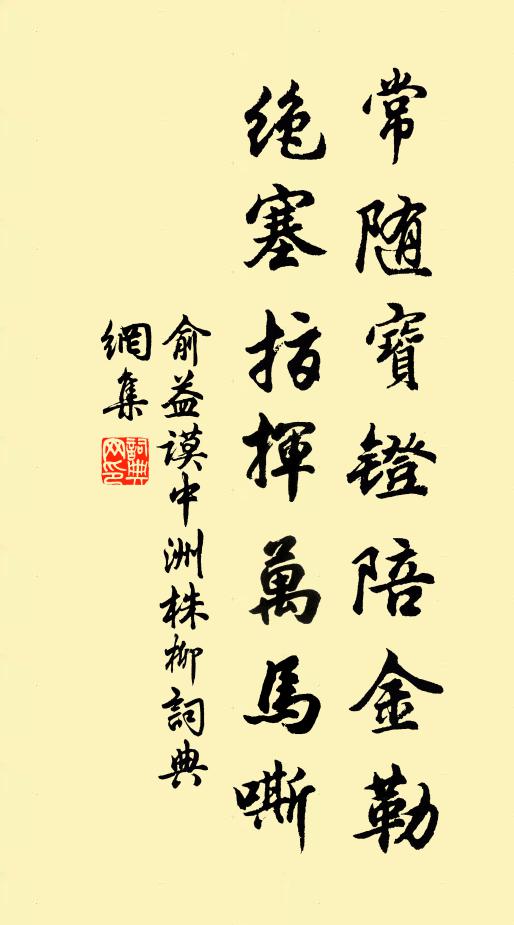 常随寶鐙陪金勒
絶塞指揮萬馬嘶
俞益謨中洲株柳詞典
網集
詞典
网印